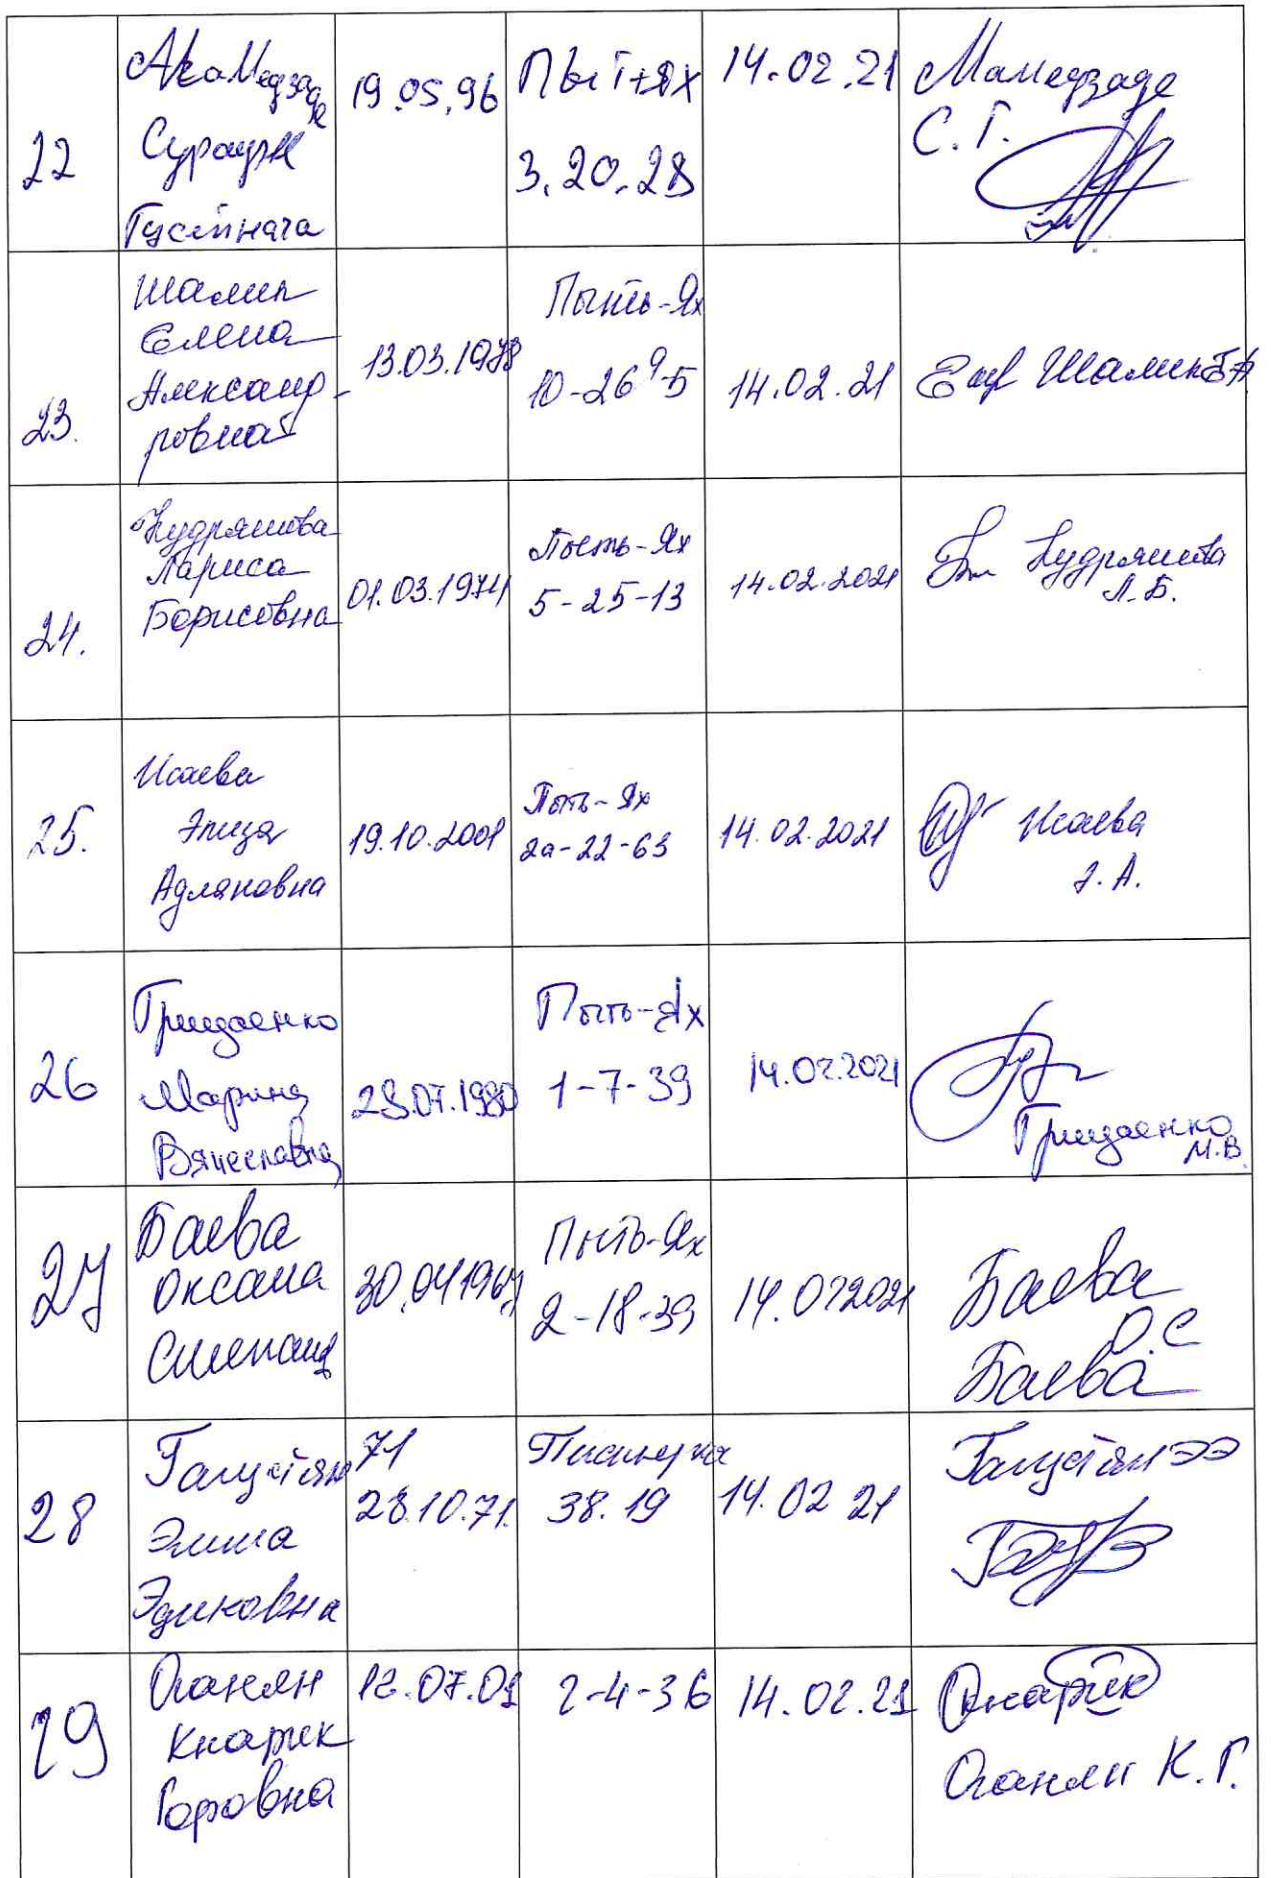 22
19.05.96
Пыть-Ях
3.20.28
14.02.21
Мамедзаде
С. Г.
23.
Шалин
Елена
Александ-
ровна
13.03.1978
Пыть-Ях
10-26 9-5
14.02.21
Шалин Е А
24.
Кудряшова
Лариса
Борисовна
01.03.1974
Пыть-Ях
5-25-13
14.02.2021
Кудряшова
Л.Б.
25.
Исаева
Элиза
Адлановна
19.10.2001
Пыть-Ях
2а-22-63
14.02.2021
Исаева
Э.А.
26
Грицаенко
Марина
Вячеславна
1980
Пыть-Ях
1-7-39
14.02.2021
Грицаенко
М.В.
27
Баева
Оксана
Степан
Пыть-Ях
2-18-39
14.02 2021
Баева
О.С
Баева
28
Галустян
Эмма
Эдиковна
71
28.10.71.
38.19
14.02 21
Галустян ЭЭ
29
Оганян
Кнарик
Горовна
2-4-36
14.02.21
Кнарик
Оганян К.Г.